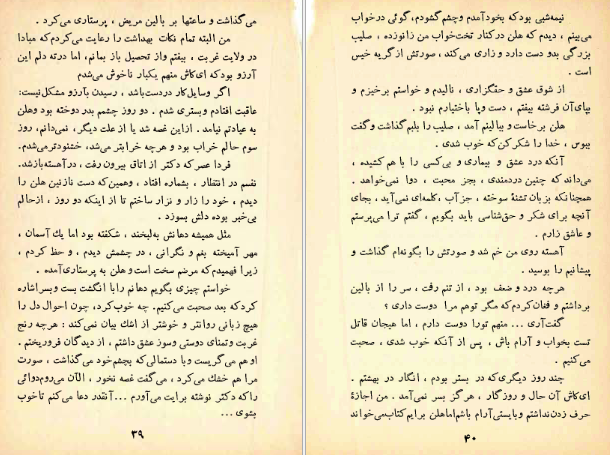 می‌گذاشت و ساعتها بر بالین مریض ، پرستاری می‌کرد .
من البته تمام نکات بهداشت را رعایت می‌کردم که مبادا
در ولایت غربت ، بیفتم واز تحصیل باز بمانم ، اما درته دلم این
آرزو بود که ای‌کاش منهم یکبار ناخوش می‌شدم
اگر وسایل کار دردست‌باشد ، رسیدن بآرزو مشکل‌نیست :
عاقبت افتادم وبستری شدم . دو روز چشمم بدر دوخته بود وهلن
به عیادتم نیامد . ازاین غصه شد یا از علت دیگر ، نمی‌دانم ، روز
سوم حالم خراب بود و هرچه خرابتر می‌شد ، خشنودتر می‌شدم .
فردا عصر که دکتر از اتاق بیرون رفت ، درآهسته بازشد .
نفسم در انتظار ، بشماره افتاد ، وهمین‌که دست نازنین هلن را
دیدم ، خود را زار و نزار ساختم تا از اینکه دو روز ، ازحالم
بی‌خبر بوده دلش بسوزد .
مثل همیشه دهانش به‌لبخند ، شکفته بود اما یك آسمان ،
مهر آمیخته بغم و نگرانی ، در چشمش دیدم ، و حظ کردم ،
زیرا فهمیدم‌که مرضم سخت است و هلن به پرستاری‌آمده .
خواستم چیزی بگویم دهانم رابا انگشت بست وبسراشاره
کردکه بعد صحبت می‌کنیم. چه خوب‌کرد، چون احوال دل را
هیچ زبانی رواتر و خوشتر از اشك بیان نمی‌کند : هرچه رنج
غربت وتمنای دوستی وسوز عشق داشتم ، از دیدگان فروریختم .
او هم می‌گریست وبا دستمالی که بچشم‌خود می‌گذاشت ، صورت
مرا هم خشك می‌کرد ، می‌گفت غصه نخور ، الآن می‌روم‌دوائی
راکه دکتر نوشته برایت می‌آورم ... آنقدر دعا می‌کنم تاخوب
بشوی ...
۳۹
نیمه‌شبی بود که بخودآمدم وچشم گشودم، گوئی درخواب
می‌بینم ، دیدم که هلن درکنار تخت‌خواب من زانوزده ، صلیب
بزرگی بدو دست دارد و زاری می‌کند ، صورتش ازگریه خیس
است .
از شوق عشق و حقگزاری ، نالیدم و خواستم برخیزم و
بپای‌آن فرشته بیفتم ، دست وپا باختیارم نبود .
هلن برخاست و ببالینم آمد ، صلیب را بلبم‌گذاشت وگفت
ببوس ، خدا را شکرکن‌که خوب شدی .
آنکه درد عشق و بیماری و بی‌کسی را با هم کشیده ،
می‌داند که چنین دردمندی ، بجز محبت ، دوا نمی‌خواهد .
همچنانکه بزبان تشنهٔ سوخته ، جز آب ، کلمه‌ای نمی‌آید ، بجای
آنچه برای شکر و حق‌شناسی باید بگویم ، گفتم ترا می‌پرستم
و عاشق زارم .
آهسته روی من خم شد و صورتش را بگونه‌ام گذاشت و
پیشانیم را بوسید .
هرچه درد و ضعف بود ، از تنم رفت ، سر را از بالین
برداشتم و فغان‌کردم‌که مگر توهم مرا دوست داری ؟
گفت‌آری ... منهم تورا دوست دارم ، اما هیجان قاتل
تست بخواب و آرام باش ، پس از آنکه خوب شدی ، صحبت
می‌کنیم .
چند روز دیگری‌که در بستر بودم ، انگار در بهشتم .
ای‌کاش آن حال و روزگار ، هرگز بسر نمی‌آمد . من اجازهٔ
حرف زدن‌نداشتم وبایستی‌آرام باشم‌اماهلن برایم‌کتاب‌می‌خواند
۴۰